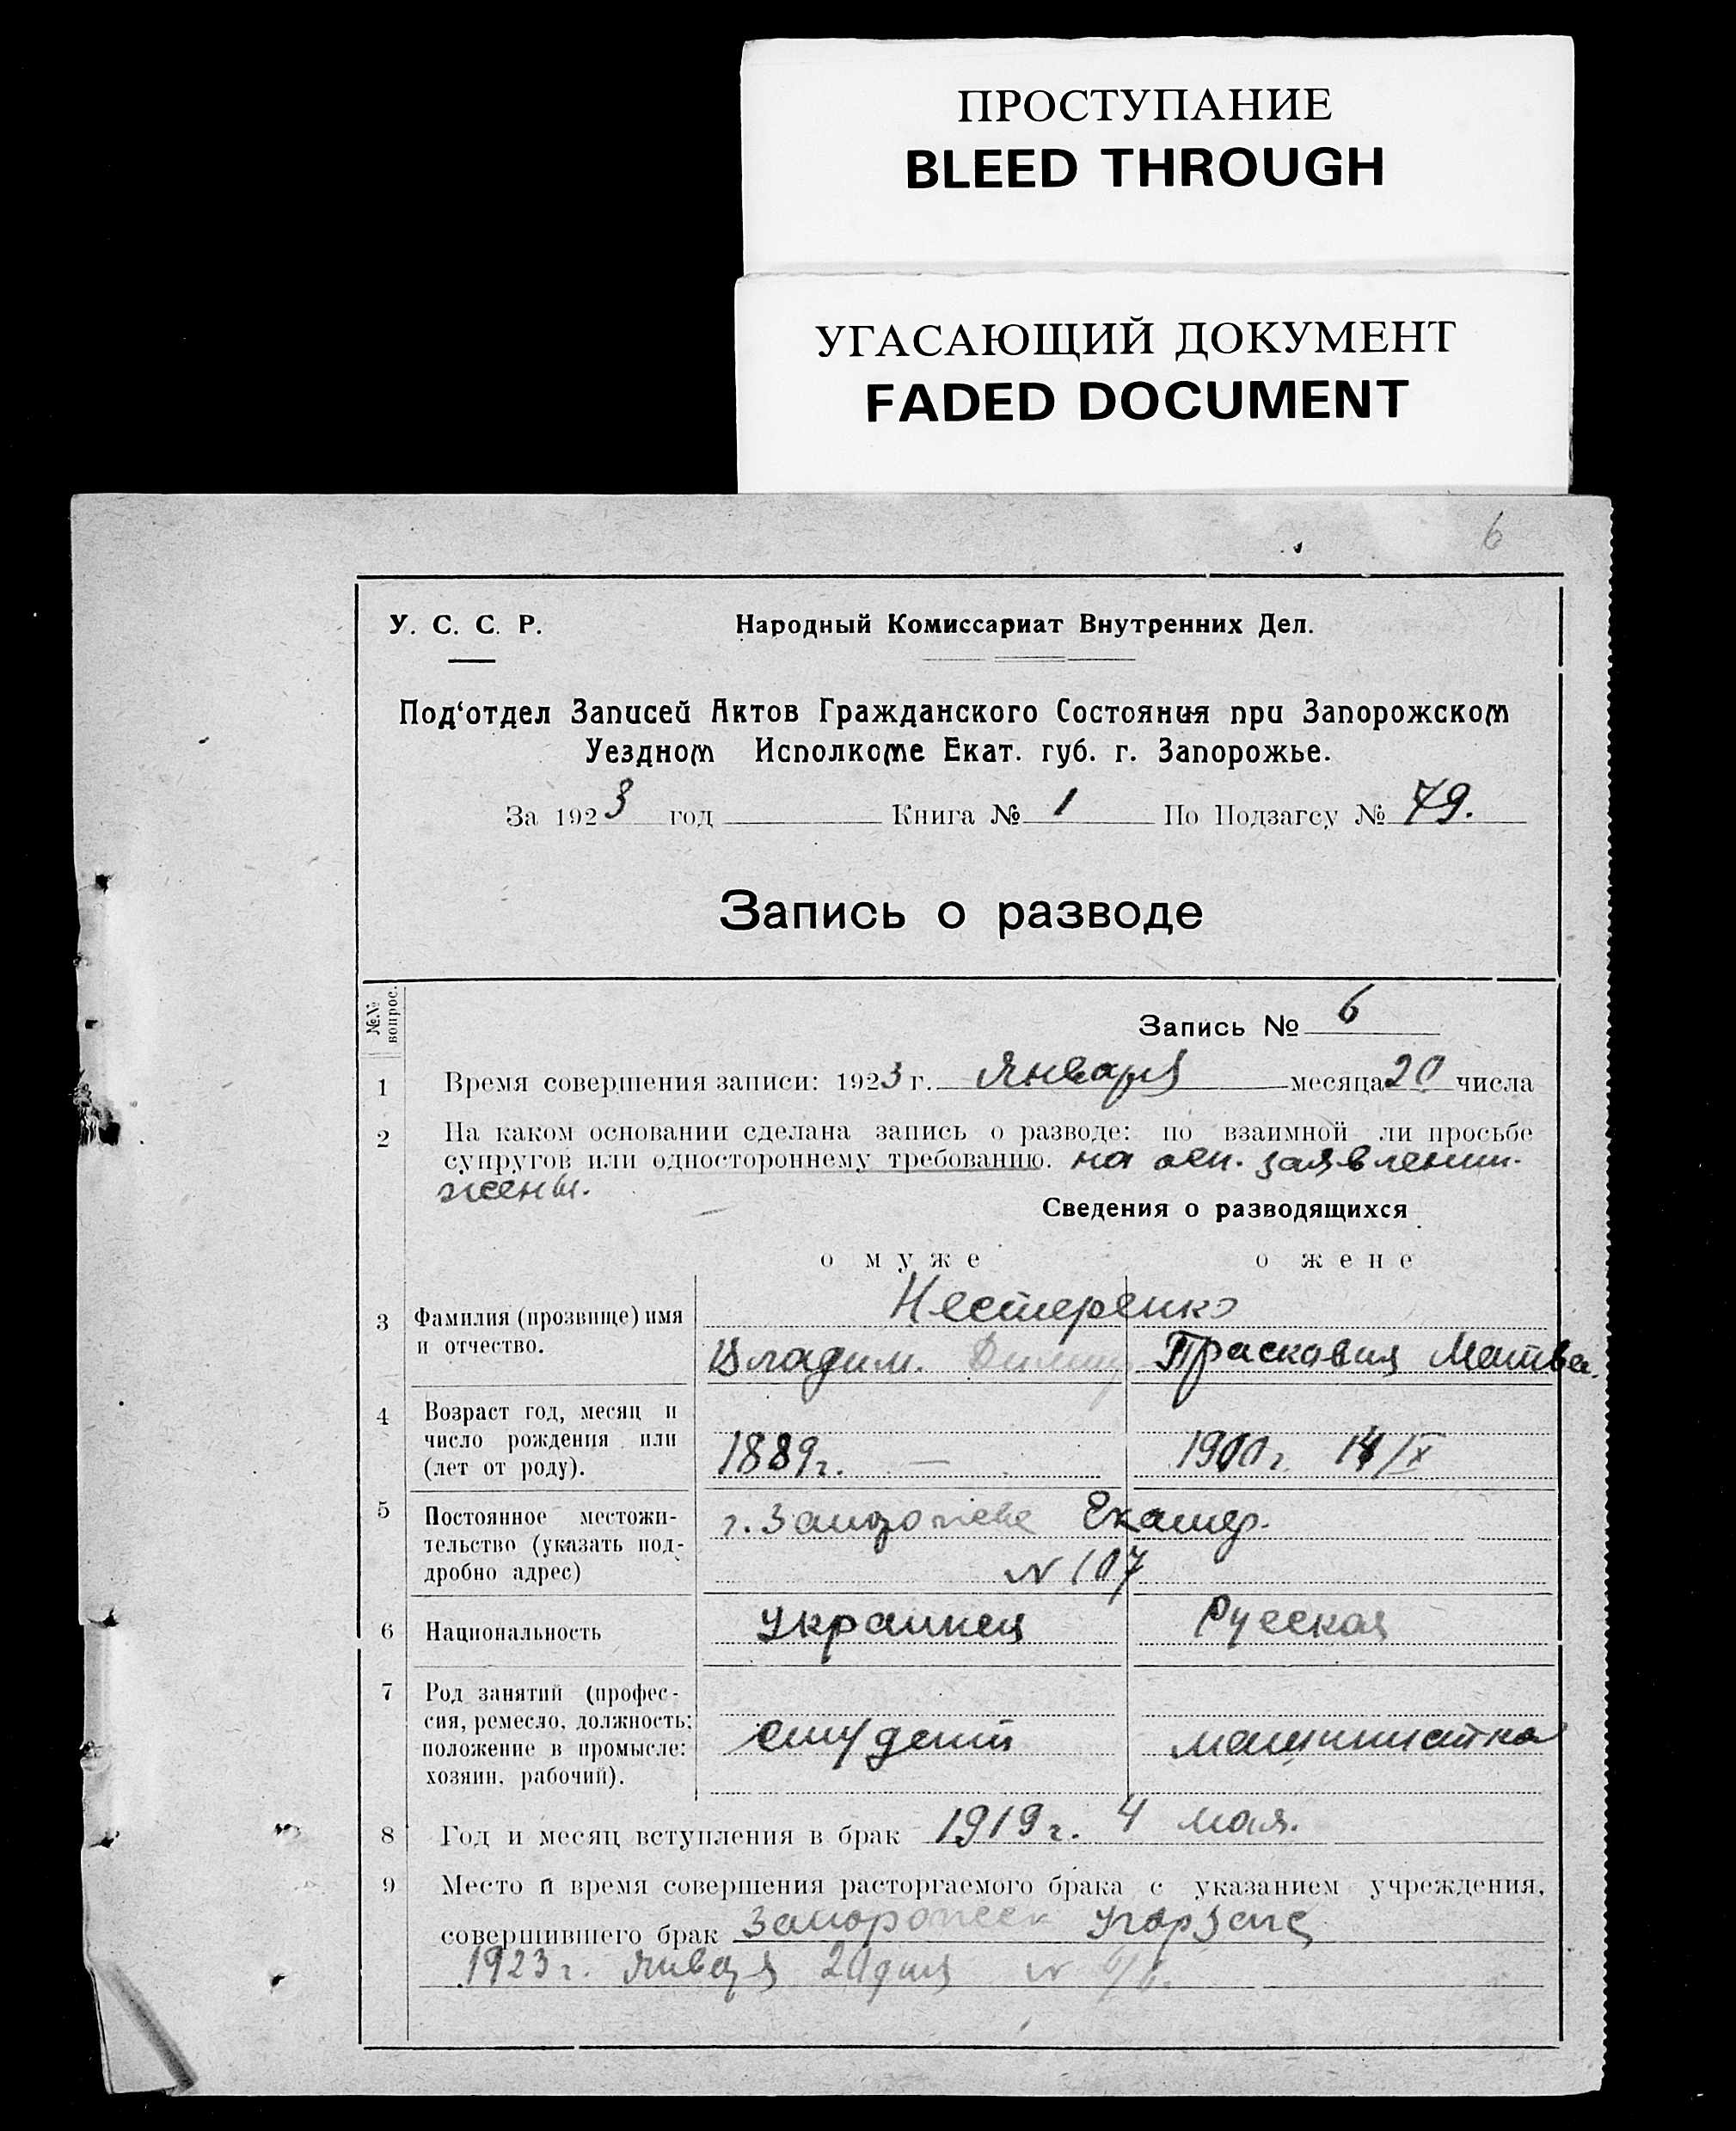 ПРОСТУПАНИЕ
BLEED THROUGH
УГАСАЮЩИЙ ДОКУМЕНТ
FADED DOCUMENT
6
У. С. С. Р. Народный Комиссариат Внутренних Дел.
Под‘отдел Записей Актов Гражданского Состояния при Запорожском
Уездном Исполкоме Екат. губ. г. Запорожье.
За 1923 год Книга № 1 По Подзагсу № 79.
Запись о разводе
№.№ вопрос.
Запись № 6
1 Время совершения записи: 1923 г. Января месяца 20 числа
2 На каком основании сделана запись о разводе: по взаимной ли просьбе
супругов или одностороннему требованию. на осн. заявлении
жены.
Сведения о разводящихся
о муже о жене
3 Фамилия (прозвище) имя Нестеренко
и отчество. Владим. Прасковия Матве.
4 Возраст год, месяц и
число рождения или 1889г. — 1900г. IX
(лет от роду).
5 Постоянное местожи- г. Запорожье Екатер.
тельство (указать под-
дробно адрес) N 107
6 Национальность Украинец Русская
7 Род занятий (профес-
сия, ремесло, должность; студент машинистка
положение в промысле:
хозяин, рабочий).
8 Год и месяц вступления в брак 1919г. 4 мая.
9 Место и время совершения расторгаемого брака с указанием учреждения,
совершившего брак Запорожск
1923г. января 20 дня N